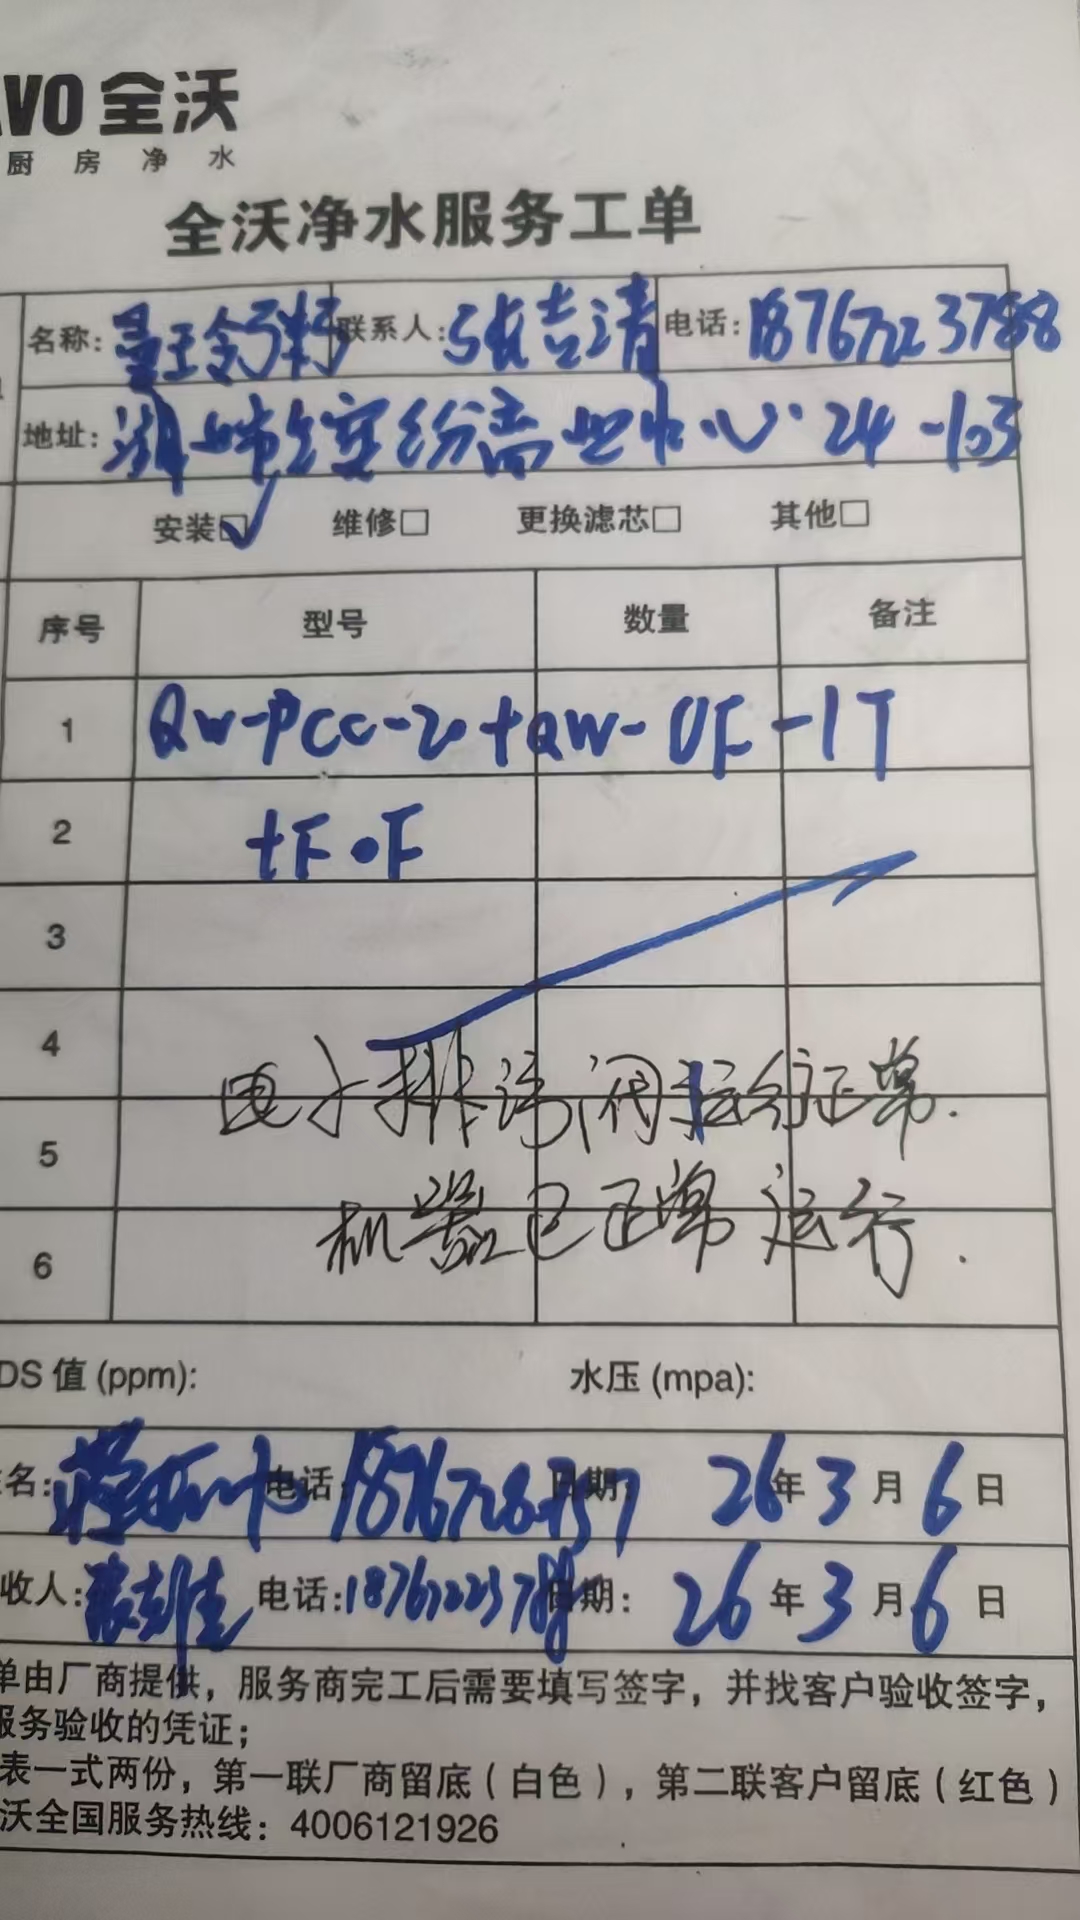 AVO 全沃
厨房净水
全沃净水服务工单
名称: 联系人: 张吉清 电话: 18767223788
地址: 湖 中心 24-103
安装☑ 维修□ 更换滤芯□ 其他□
序号 型号 数量 备注
1 QW-PCC-20+QW-UF-1T
2 +F·F
3
4 电子排污阀运行正常.
5
6 机器已正常运行.
DS 值 (ppm): 水压 (mpa):
名: 电话: 日期: 26年3月6日
收人: 电话: 18767223788 日期: 26年3月6日
单由厂商提供，服务商完工后需要填写签字，并找客户验收签字，
服务验收的凭证；
表一式两份，第一联厂商留底（白色），第二联客户留底（红色）
沃全国服务热线：4006121926